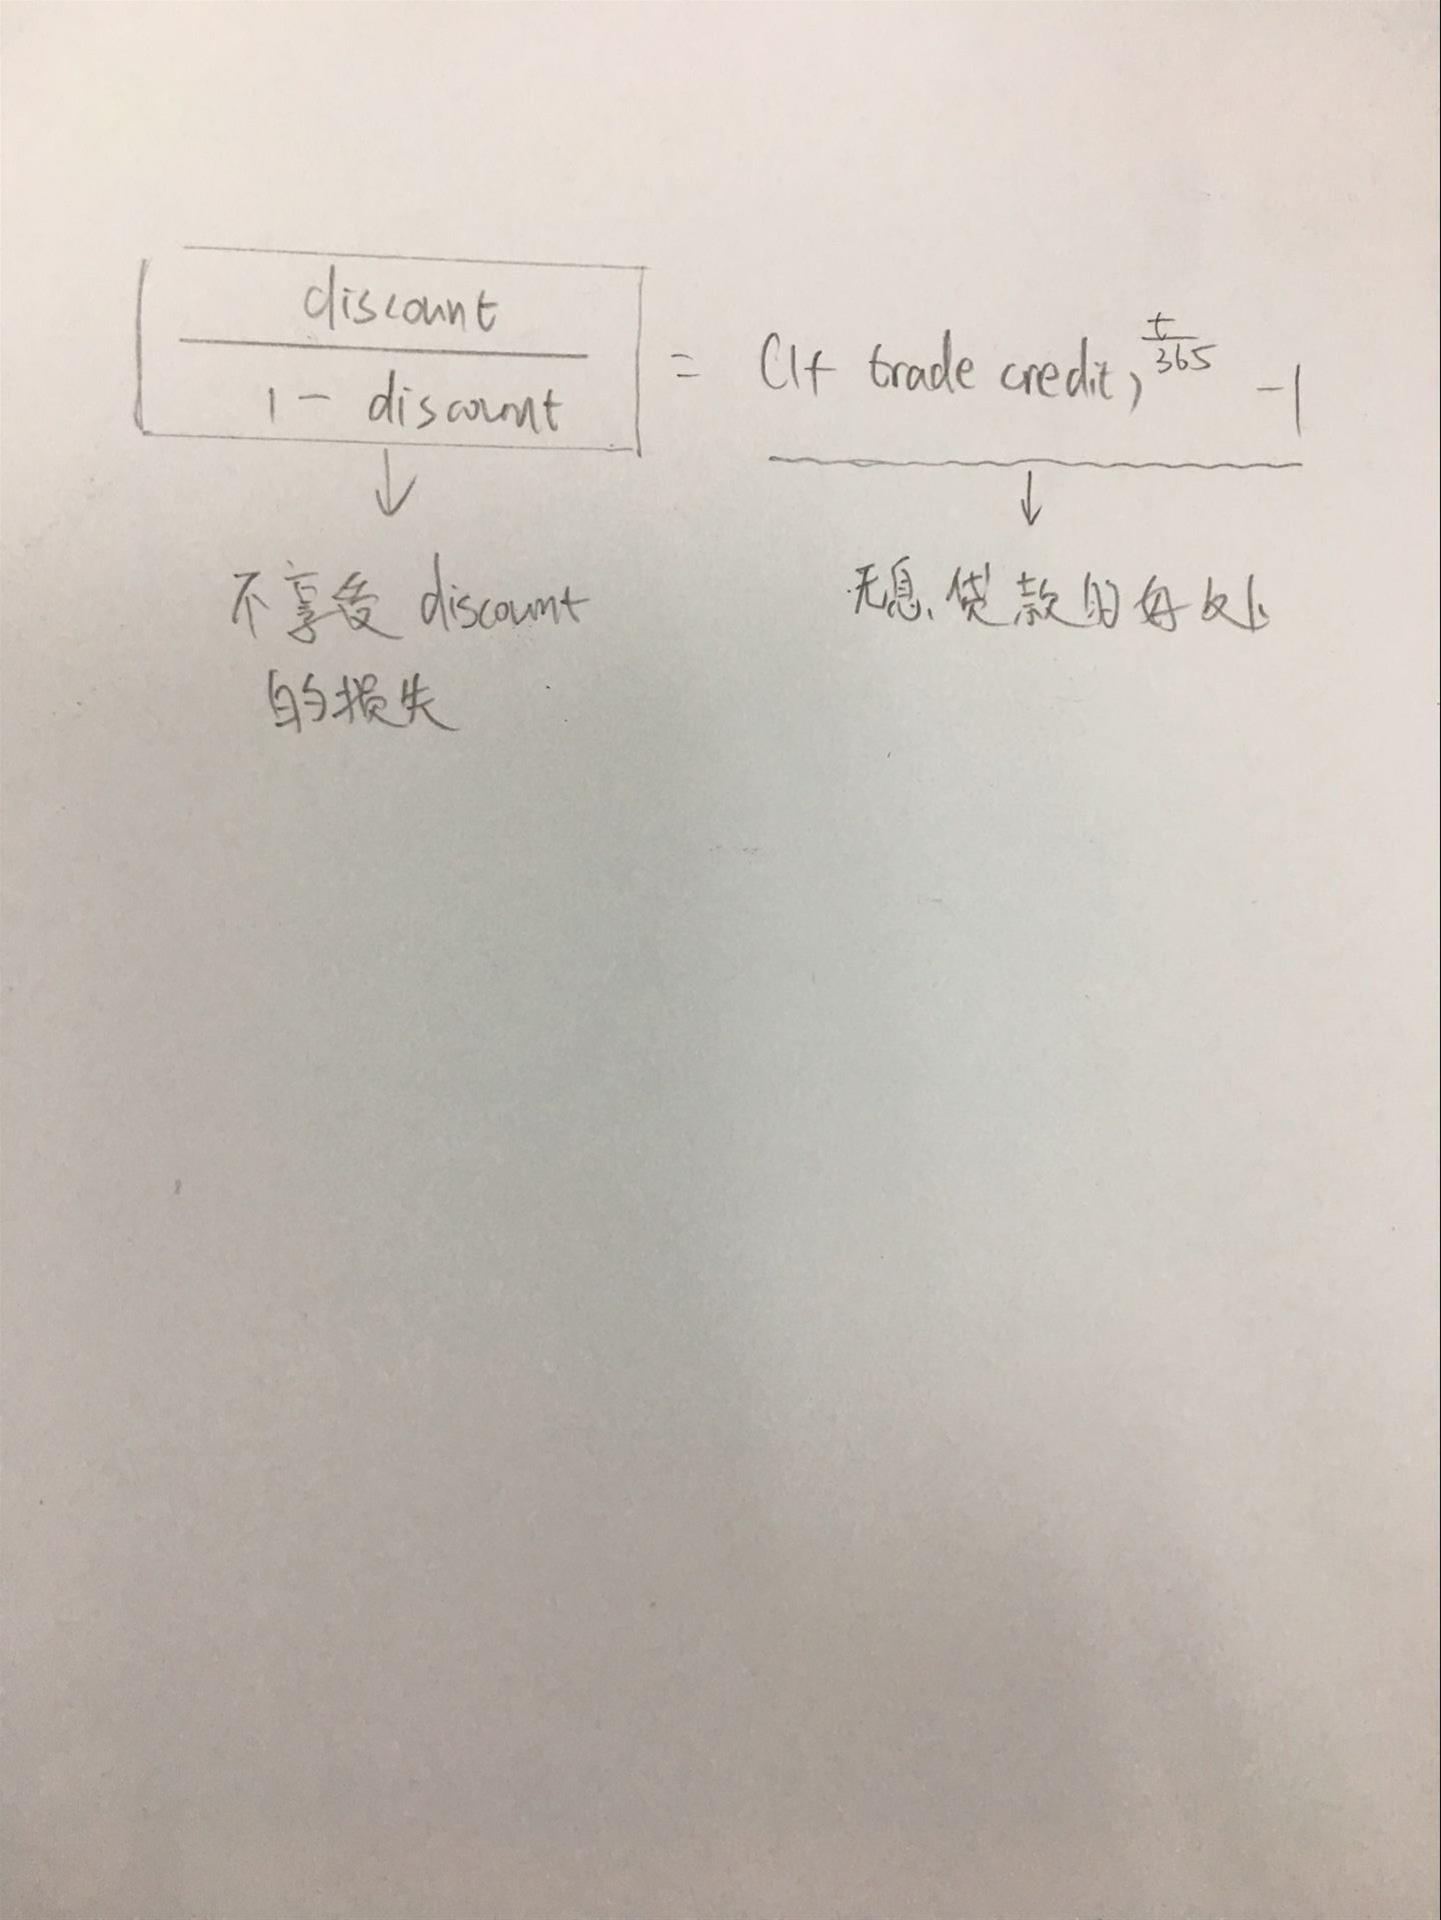 discount
1 - discount
= (1+ trade credit) t/365 -1
↓ ↓
不享受 discount
的损失
无息贷款的好处